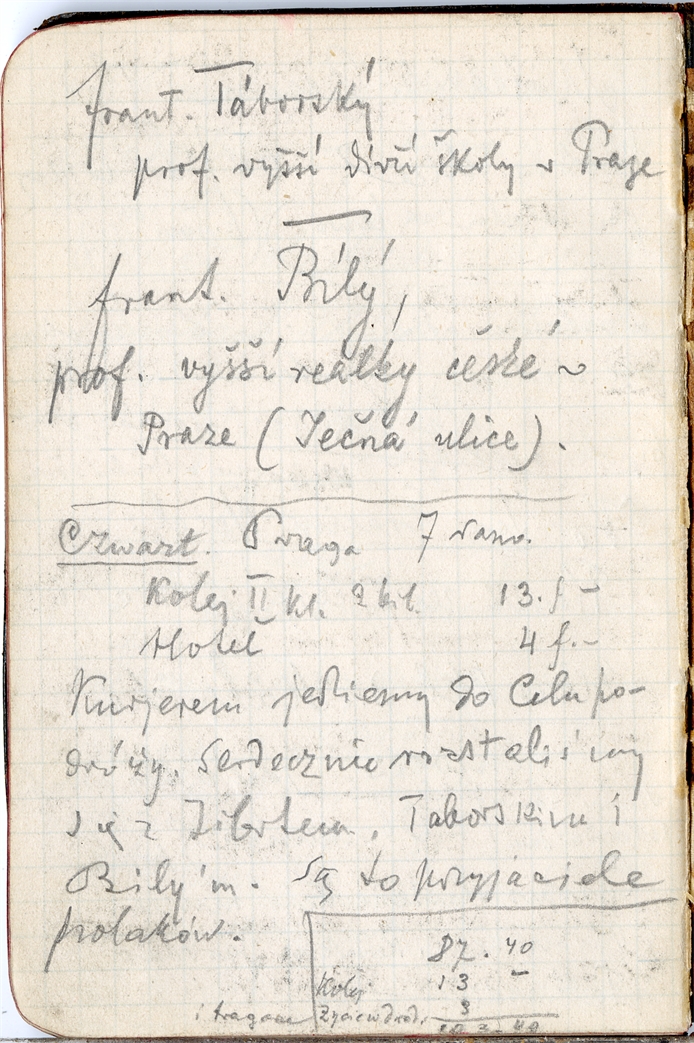 frant. Táborský
prof. vyšší dívčí školy v Praze
frant. Bílý,
prof. vyšší reálky české v
Praze (Ječná ulice).
Czwart. Praga 7 rano.
Kolej II kl. 2 bil. 13. f –
Hotel 4 f. –
Kurjerem jedziemy do Celu po-
dróży. Serdecznie rozstaliśmy
się z Zibrtem, Taborskim i
Bily'm. Są to przyjaciele
polaków.
87. 40
Kolej 13 –
i tragarz Życie w drodz. 3